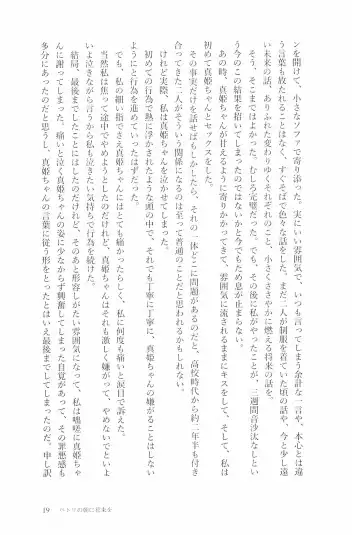 ンを開けて、小さなソファで寄り添った。実にいい雰囲気で、いつも言ってしまう余計な一言や、本心とは違
う言葉も放たれることはなく、すくそばで色々な話をした。まだ二人が制服を着ていた頃の話や、今と少し遠
い未来の話。ありふれた変わりゆくそれぞれのこと、小さくささやかに燃える将来の話を。
そう、そこまではよかった。むしろ完璧だった。でも、その後に私がやったことが、三週間音沙汰なしとい
う今のこの結果を招いてしまったのではないかと今でもため息が止まらない。
あの時、真姫ちゃんが甘えるように寄りかかってきて、雰囲気に流されるままにキスをして、そして、私は
初めて真姫ちゃんとセックスをした。
その事実だけを話せばもしかしたら、それの一体どこに問題があるのだと、高校時代から約二年半も付き
合ってきた二人がそういう関係になるのは至って普通のことだと思われるかもしれない。
けれど実際、私は真姫ちゃんを泣かせてしまった。
初めての行為で熱に浮かされたような頭の中で、それでも丁寧に丁寧に、真姫ちゃんの嫌がることはしない
ようにと行為を進めていったはずだった。
でも、私の細い指でさえ真姫ちゃんにはとても痛かったらしく、私に何度も痛いと涙目で訴えた。
当然私は焦って途中でやめようとしたのだけれど、真姫ちゃんはそれも激しく嫌がって、やめないでとい
いよ泣きながら言うから私も泣きたい気持ちで行為を続けた。
結局、最後までしたことにはしたのだけれど、そのあと形容しがたい雰囲気になって、私は真姫ちゃ
んに謝ってしまった。痛いと泣く真姫ちゃんの姿に少なからず興奮してしまった自覚があって、その罪悪感も
多分にあったのだと思うし、真姫ちゃんの言葉に従う形をとったとはいえ最後までしてしまったのだ。申し訳
19